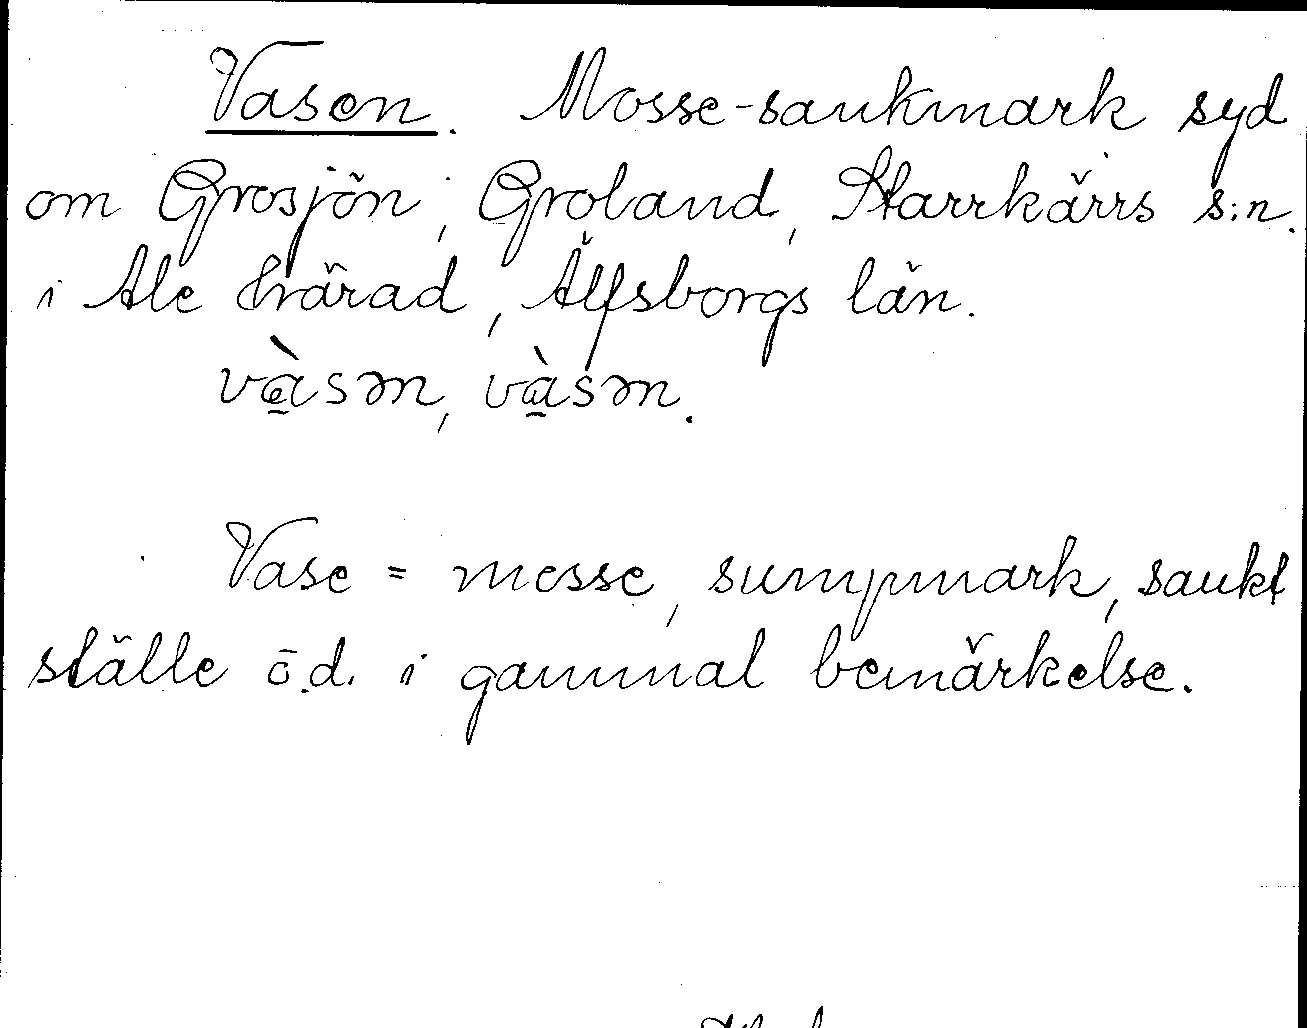 Vasen. Mosse-sankmark syd
om Grosjön, Groland, Starrkärrs s:n.
i Ale härad, Älfsborgs län.
và̱sən, và̱sən.
Vase = mosse, sumpmark, sankt
ställe o.d. i gammal bemärkelse.